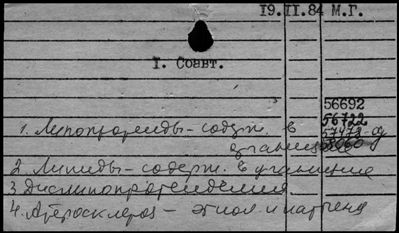 19.II.84 М.Г.
I. Соавт.
56692
56722
57478
1. Липопротеиды - содерж. в
2. Липиды - содерж. в
3. Дислипопротеидемия
4. Атеросклероз - этиол. и патоген.